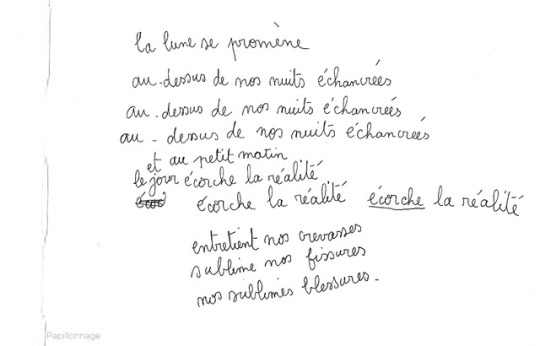 la lune se promène
au-dessus de nos nuits échancrées
au-dessus de nos nuits échancrées
au-dessus de nos nuits échancrées
et au petit matin
le jour écorche la réalité
écorche la réalité écorche la réalité
entretient nos crevasses
sublime nos fissures
nos sublimes blessures.
Papillonnage